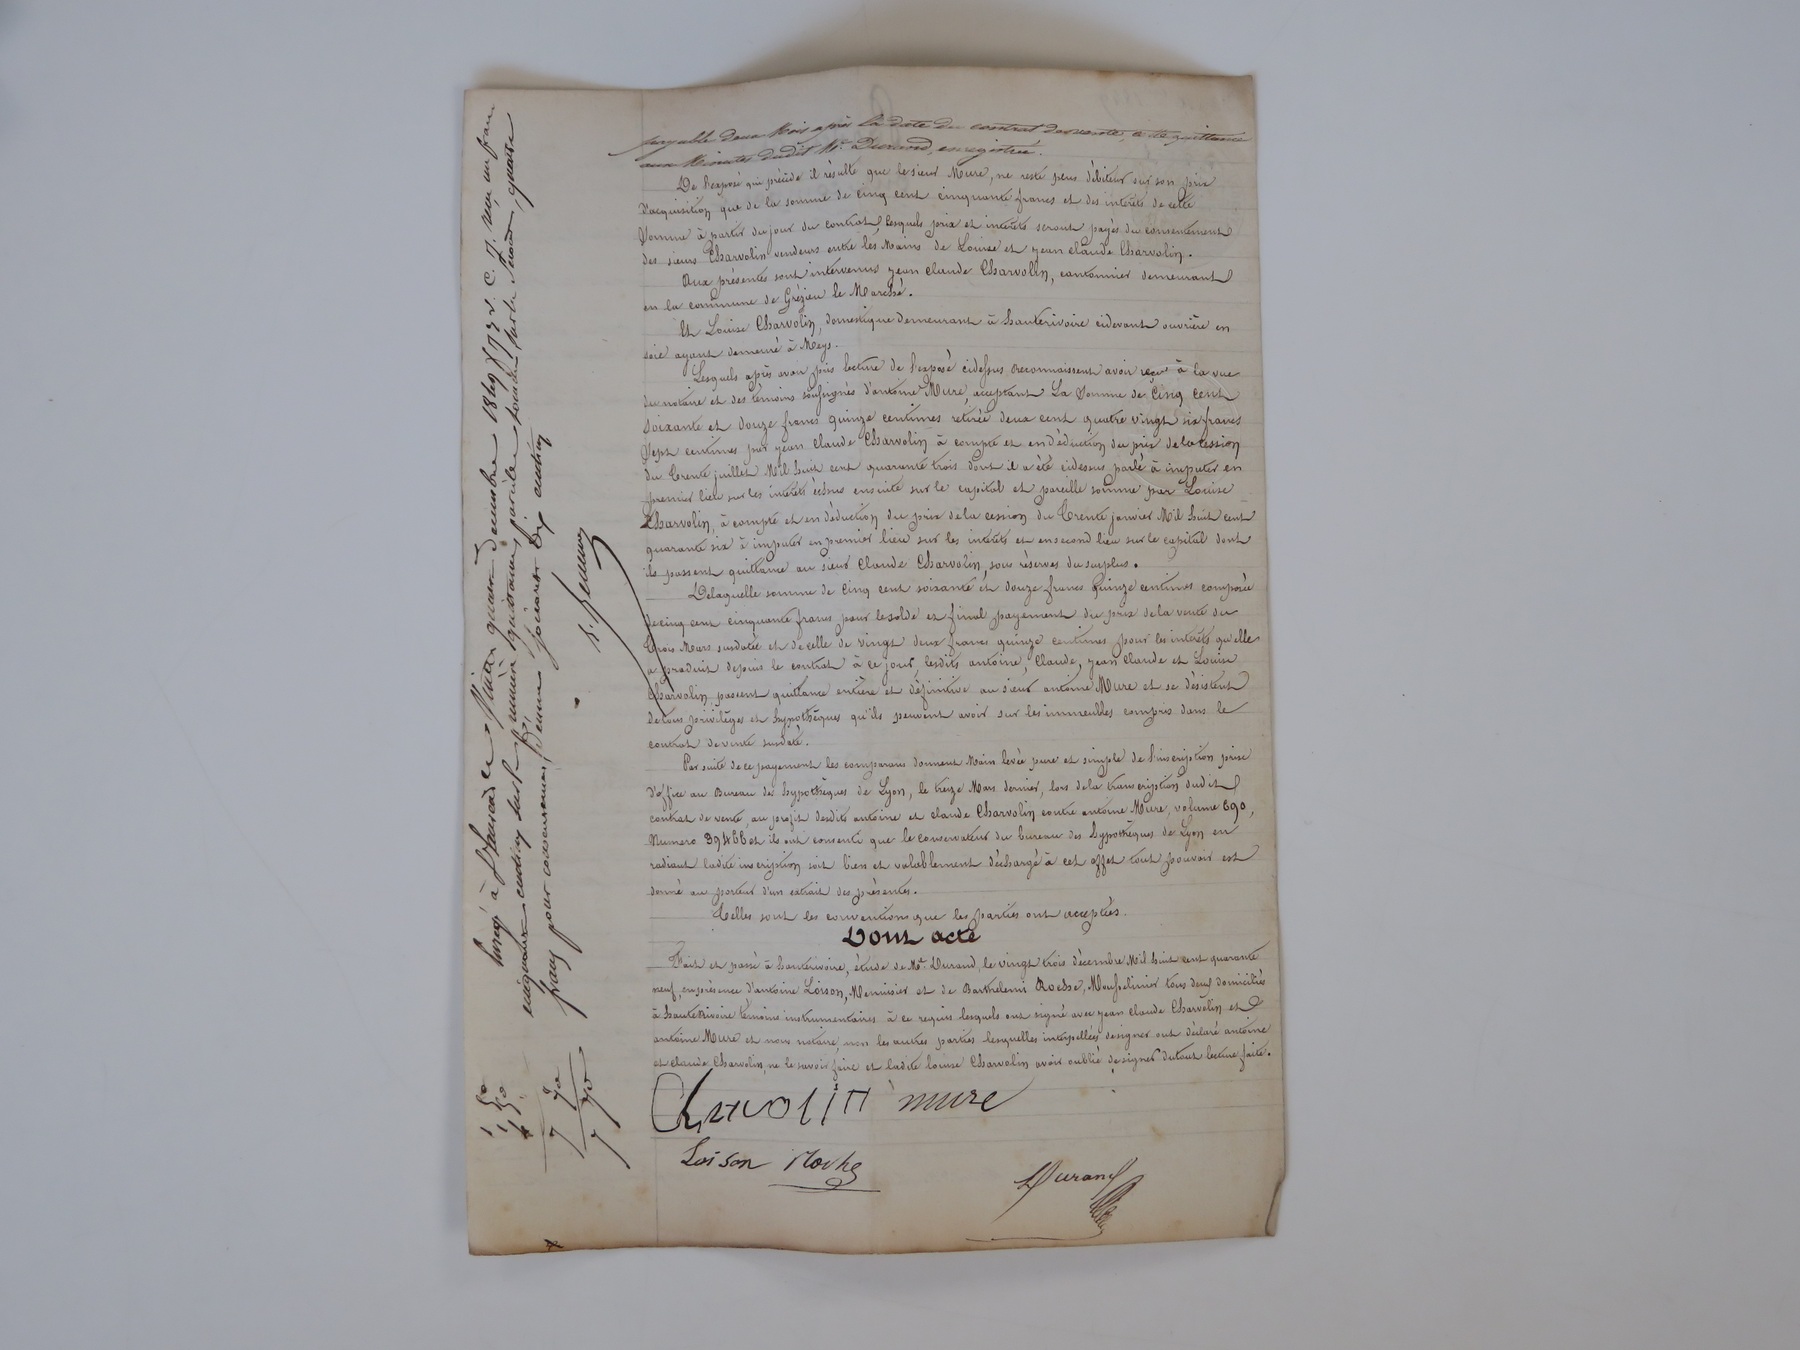 payable deux Mois après la date du contrat de vente, cette quittance
aux Minutes dudit Me Durand, enregistrée.
De l'exposé qui précède il résulte que le sieur Mure, ne reste plus débiteur sur son prix
d'acquisition que de la somme de cinq cent cinquante francs et des intérêts de cette
Somme à partir du jour du contrat, lesquels prix et intérêts seront payés du consentement
des sieurs Charvolin vendeurs entre les Mains de Louise et jean claude Charvolin.
Aux présentes sont intervenus jean claude Charvolin, cantonnier demeurant
en la commune de Grézieu le Marché.
Et Louise Charvolin, domestique demeurant à hauterivoire cidevant ouvrière en
soie ayant demeuré à Meys.
Lesquels après avoir pris lecture de l'exposé cidessus reconnaissent avoir reçu à la vue
du notaire et des témoins soussignés d'antoine Mure, acceptant La Somme de Cinq cent
soixante et douze francs quinze centimes retirée deux cent quatre vingt six francs
Sept centimes par jean claude Charvolin à compte et en déduction du prix de la cession
du trente juillet Mil huit cent quarante trois dont il a été cidessus parlé à imputer en
premier lieu sur les intérêts échus ensuite sur le capital et pareille somme par Louise
Charvolin, à compte et en déduction du prix de la cession du trente janvier Mil huit cent
quarante six à imputer en premier lieu sur les intérêts et en second lieu sur le capital dont
ils passent quittance au sieur Claude Charvolin, sous réserves du surplus.
Delaquelle somme de Cinq cent soixante et douze francs Quinze centimes composée
de cinq cent cinquante francs pour le solde et final payement du prix de la vente du
trois Mars susdatée et de celle de vingt deux francs quinze centimes pour les intérêts qu'elle
a produit depuis le contrat à ce jour, lesdits antoine, Claude, jean claude et Louise
Charvolin, passent quittance entière et définitive au sieur antoine Mure et se désistent
de tous privilèges et hypothèques qu'ils peuvent avoir sur les immeubles compris dans le
contrat de vente susdaté.
Par suite de ce payement les comparans donnent Main levée pure et simple de l'inscription prise
d'office au Bureau des hypothèques de Lyon, le treize Mars dernier, lors de la transcription dudit
contrat de vente, au profit desdits antoine et claude Charvolin contre antoine Mure, volume 690,
Numéro 39466 et ils ont consenti que le conservateur du bureau des hypothèques de Lyon en
radiant ladite inscription soit bien et valablement déchargé à cet effet tout pouvoir est
donné au porteur d'un extrait des présentes.
Telles sont les conventions que les parties ont acceptées.
Dont acte
Fait et passé à hauterivoire, étude de Me Durand, le vingt trois décembre Mil huit cent quarante
neuf, en présence d'antoine Loison, Menuisier et de Barthelemi Roche, Mousselinier tous deux domiciliés
à hauteRivoire témoins instrumentaires à ce requis lesquels ont signé avec jean claude Charvolin et
antoine Mure et nous notaire, non les autres parties lesquelles interpellées de signer ont déclaré antoine
et claude Charvolin, ne le savoir faire et ladite louise Charvolin avoir oublié de signer du tout lecture faite.
Charvolin mure
Loison Roche
Durand
décembre 1849
francs pour